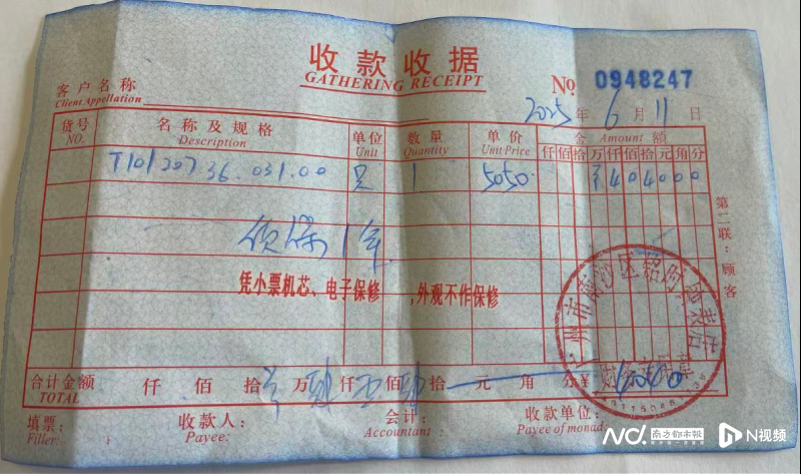 收款收据
GATHERING RECEIPT
No 0948247
客户名称
Client Appellation
2025年6月11日
货号 名称及规格 单位 数量 单价 金额
NO. Description Unit Quantity Unit Price Amount
仟佰拾万仟佰拾元角分
T101207 36.031.00 只 1 5050. ¥404000
保1年
凭小票机芯、电子保修,外观不作保修
第二联:顾客
合计金额 仟 佰 拾 万 仟 佰 拾 元 角 分¥ 4040
TOTAL
填票: 收款人: 会计: 收款单位:
Filler: Payee: Accountant: Payee of monad:
广州市南沙区 表店
财务专用章
N 南方都市报 N视频